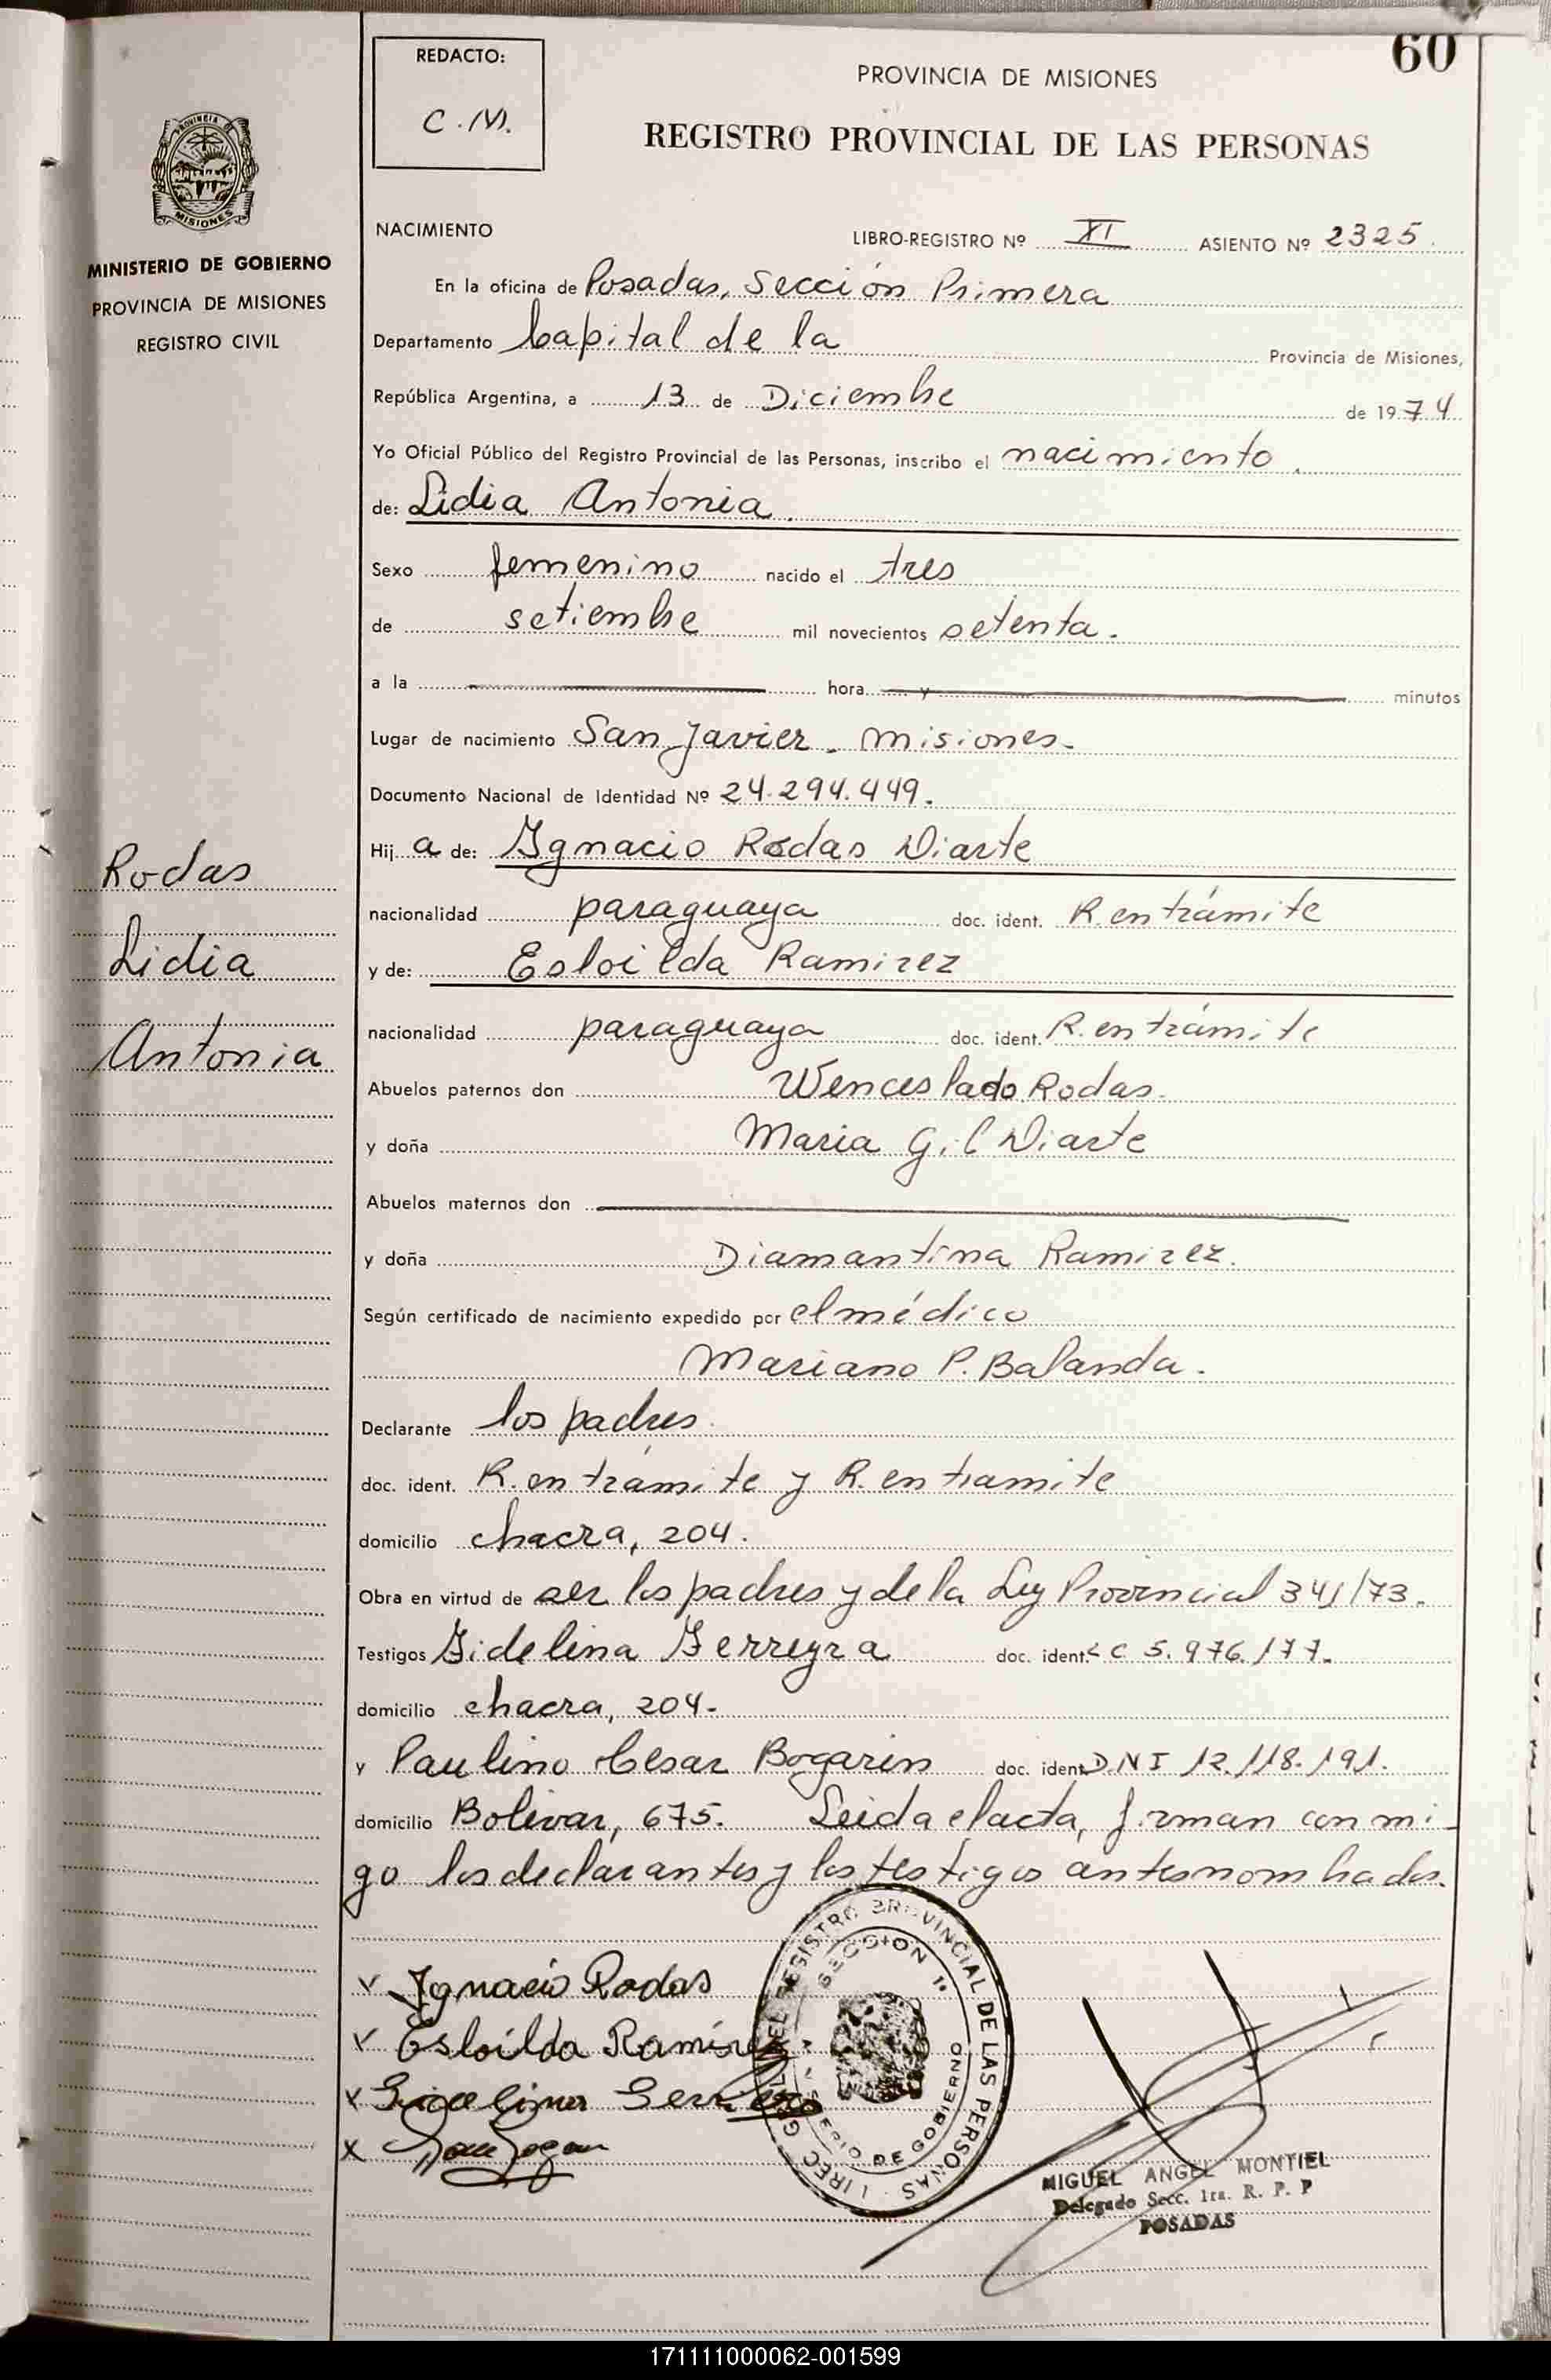 60
REDACTO:
C.M.
PROVINCIA DE MISIONES
REGISTRO PROVINCIAL DE LAS PERSONAS
PROVINCIA DE
MISIONES
MINISTERIO DE GOBIERNO
PROVINCIA DE MISIONES
REGISTRO CIVIL
NACIMIENTO
LIBRO-REGISTRO Nº XI ASIENTO Nº 2325.
En la oficina de Posadas, Sección Primera
Departamento Capital de la Provincia de Misiones,
República Argentina, a 13 de Diciembre de 1974
Yo Oficial Público del Registro Provincial de las Personas, inscribo el nacimiento.
de: Lidia Antonia.
Sexo femenino nacido el tres
de setiembre mil novecientos setenta.
a la hora y minutos
Lugar de nacimiento San Javier - Misiones-
Documento Nacional de Identidad Nº 24.294.449.
Hij a de: Ygnacio Rodas Diarte
nacionalidad paraguaya doc. ident. R. en trámite
y de: Esloilda Ramirez
nacionalidad paraguaya doc. ident. R. en trámite
Abuelos paternos don Wenceslado Rodas.
y doña Maria Gil Diarte
Abuelos maternos don
y doña Diamantina Ramirez.
Según certificado de nacimiento expedido por el médico
Mariano P. Balanda.
Declarante los padres.
doc. ident. R. en trámite y R. en tramite
domicilio chacra, 204.
Obra en virtud de ser los padres y de la Ley Provincial 341/73.
Testigos Fidelina Ferreyra doc. ident. LC 5.976.177.
domicilio chacra, 204-
y Paulino Cesar Bogarin doc. ident. DNI 12.118.191.
domicilio Bolivar, 675. Leida el acta, firman conmi-
go los declarantes y los testigos antes nombrados.
Rodas
Lidia
Antonia
x Ignacio Rodas
x Esloilda Ramirez
x
x
REGISTRO PROVINCIAL DE LAS PERSONAS
SECCION 1ª
DE GOBIERNO
MIGUEL ANGEL MONTIEL
Delegado Secc. 1ra. R. P. P
POSADAS
171111000062-001599